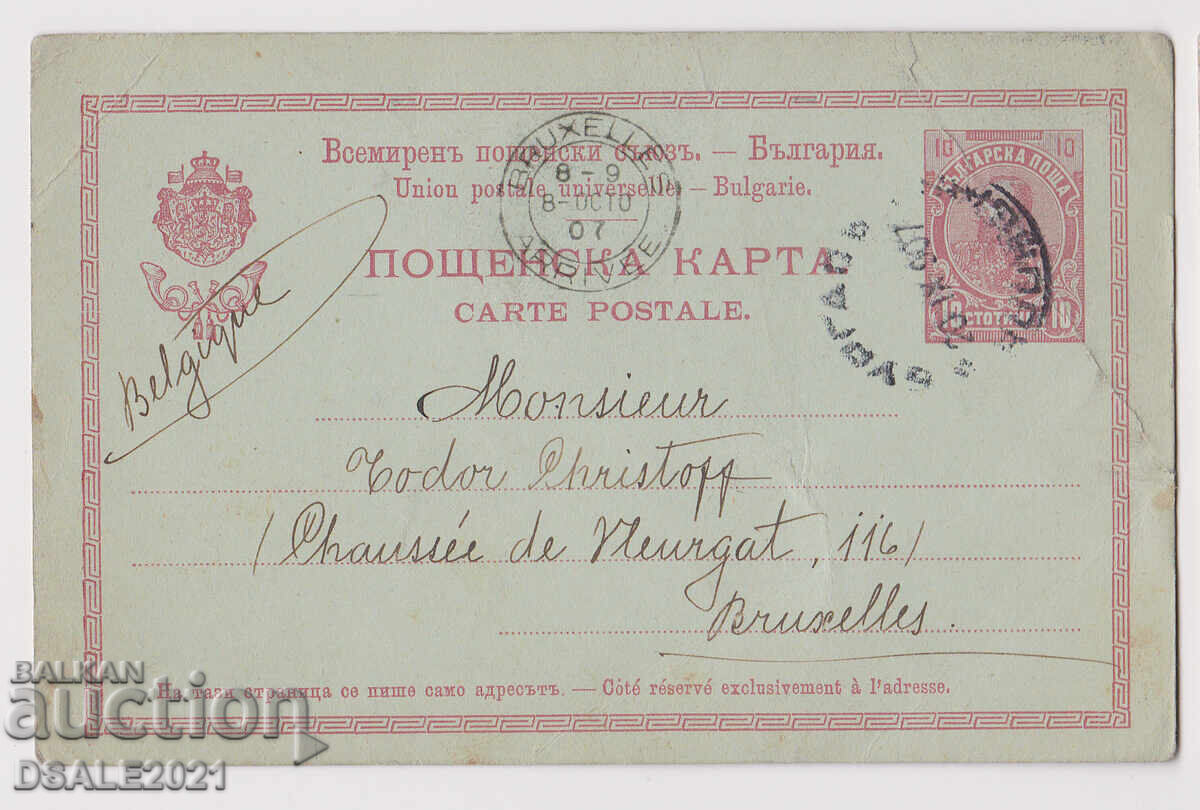 Всемиренъ пощенски съюзъ. — България.
Union postale universelle. — Bulgarie.
ПОЩЕНСКА КАРТА
CARTE POSTALE.
10 10
БЪЛГАРСКА ПОЩА
10 СТОТИНКИ 10
BRUXELLES
8 - 9
8-OCTO
07
ARRIVEE
Belgique
Monsieur
Todor Christoff
/ Chaussée de Vleurgat, 116/
Bruxelles.
На тази страница се пише само адресътъ. — Côté réservé exclusivement à l'adresse.
BALKAN
auction
DSALE2021